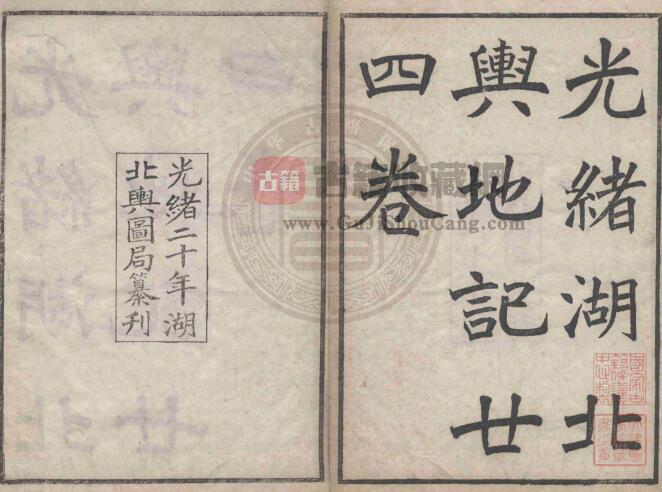 光緒湖北
輿地記廿
四卷
光緒二十年湖
北輿圖局纂刊
古籍
古籍收藏網
www.GuJiShouCang.com